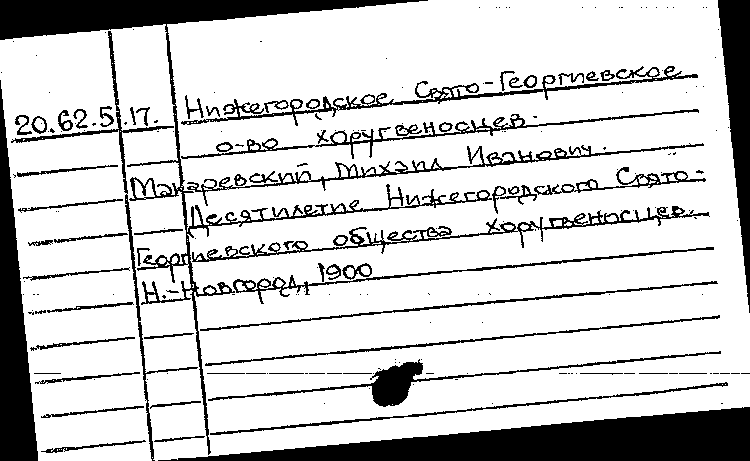 20.62.5.17. Нижегородское Свято-Георгиевское
о-во хоругвеносцев.
Макаревский, Михаил Иванович.
Десятилетие Нижегородского Свято-
Георгиевского общества хоругвеносцев.
Н.-Новгород, 1900